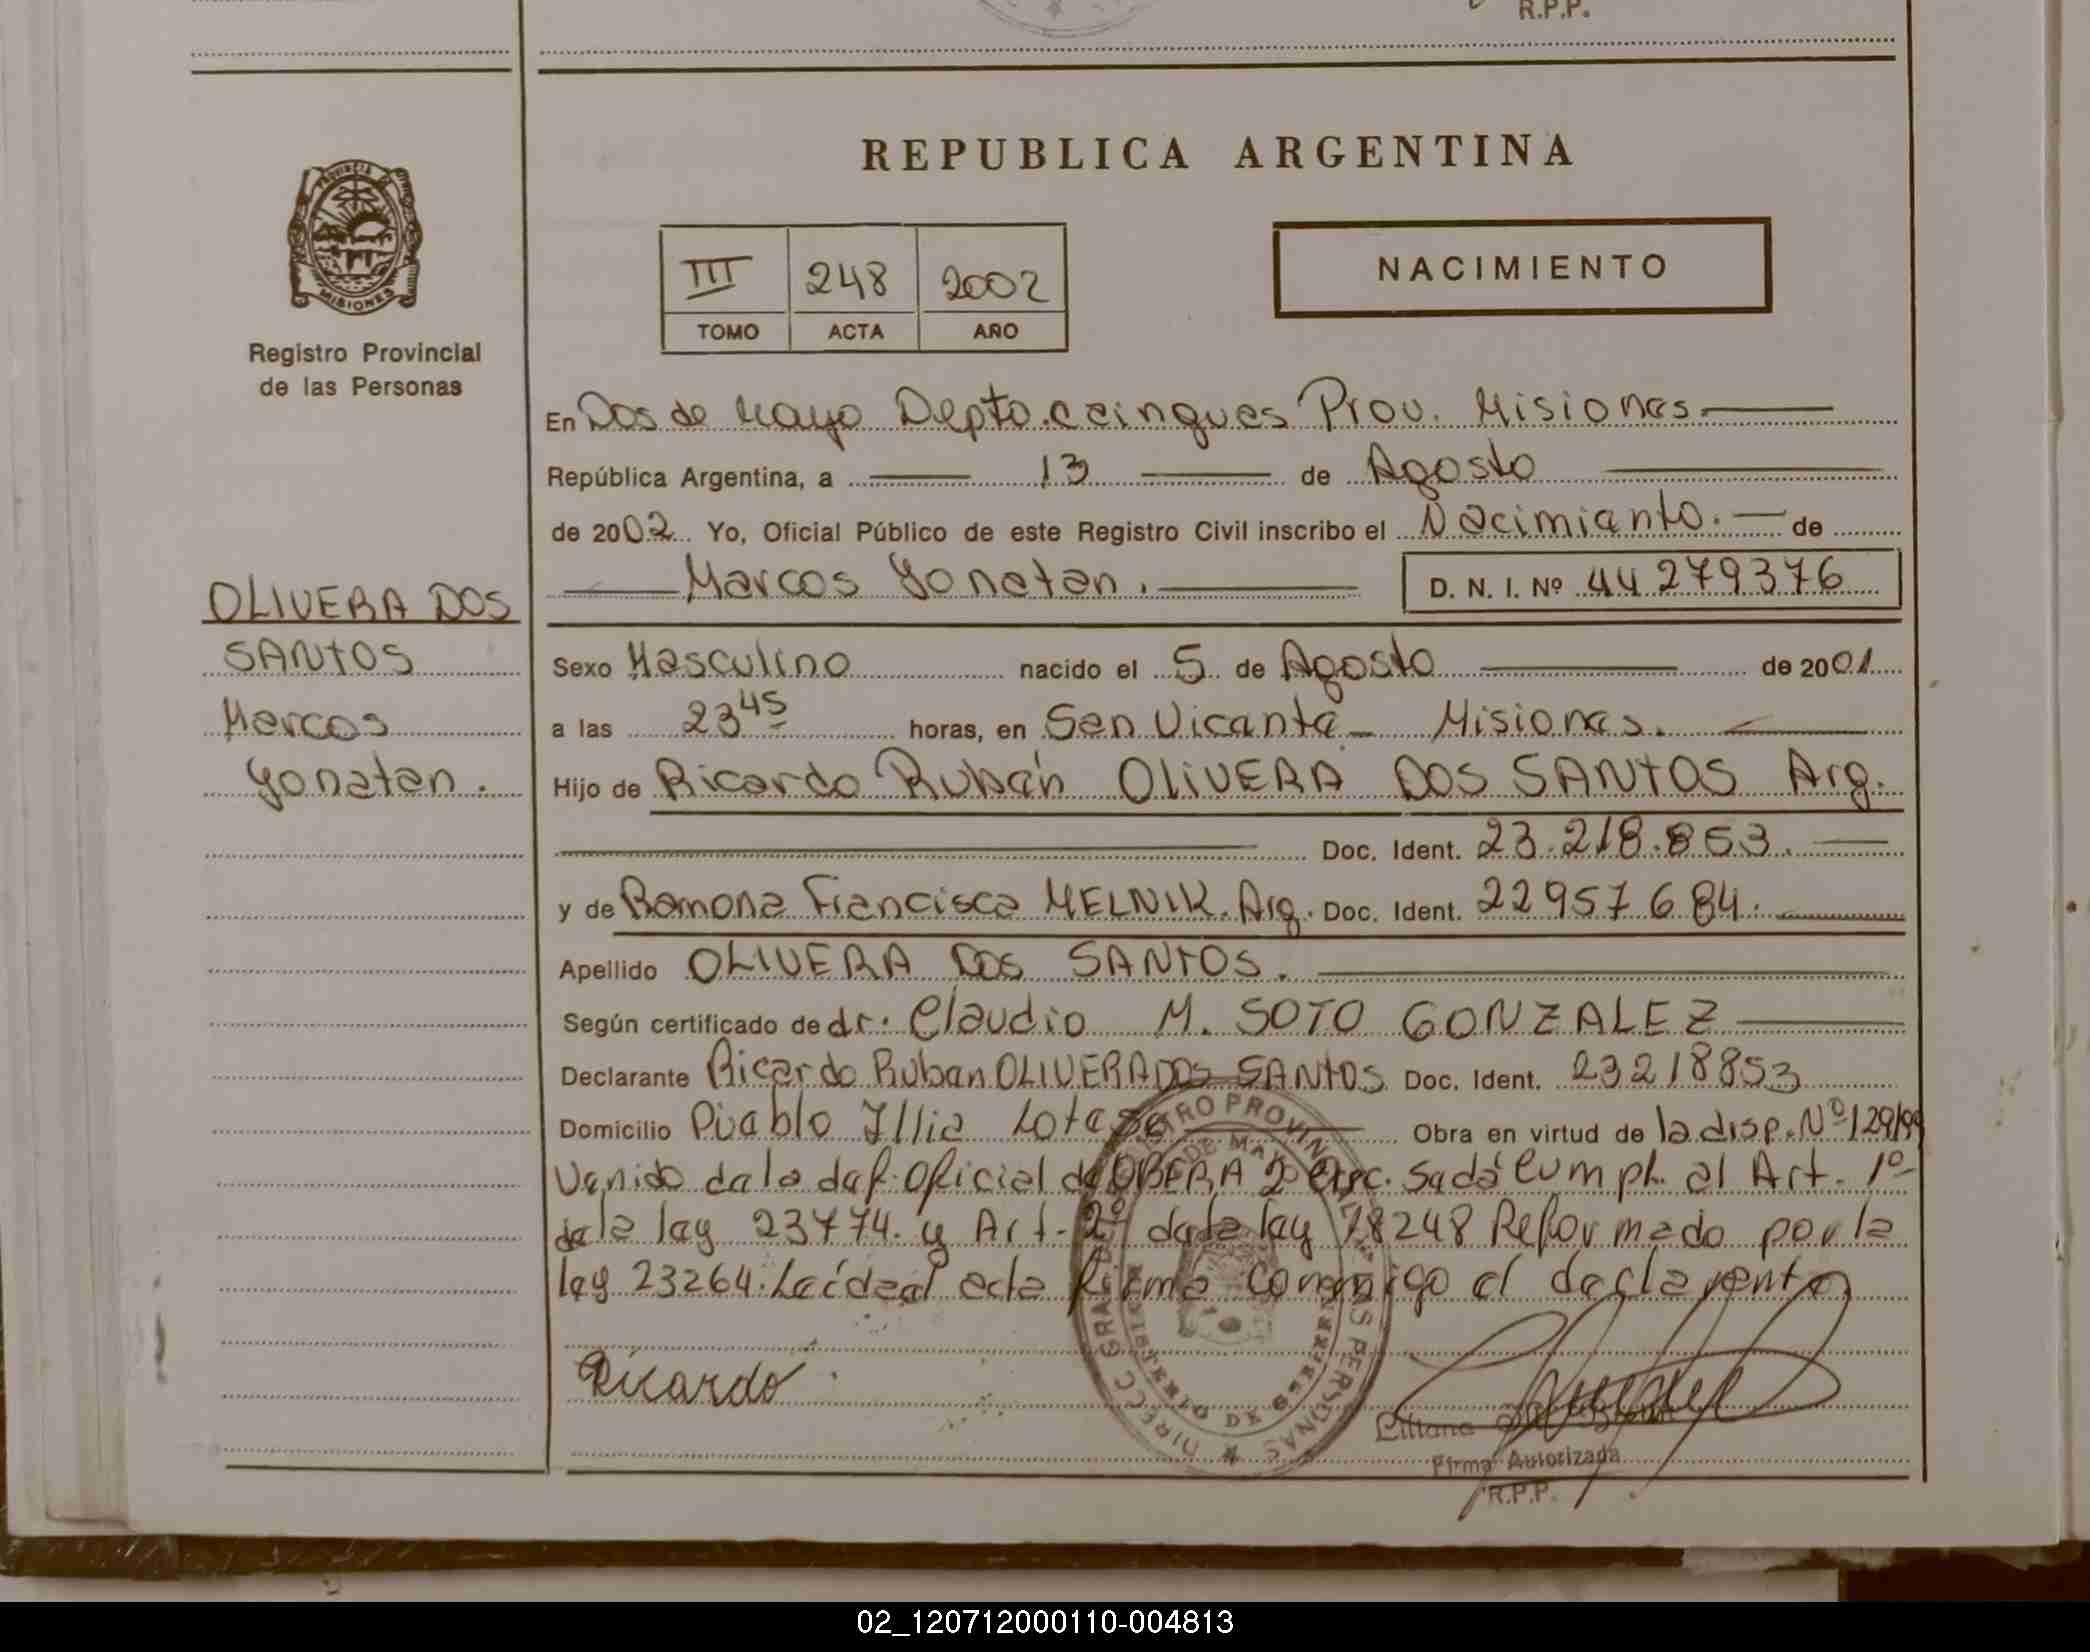 R.P.P.
REPUBLICA ARGENTINA
PROVINCIA DE MISIONES
Registro Provincial
de las Personas
III 248 2002
TOMO ACTA AÑO
NACIMIENTO
En Dos de Mayo Depto. Prov. Misiones
República Argentina, a 13 de Agosto
de 2002 Yo, Oficial Público de este Registro Civil inscribo el Nacimiento. de
Marcos Yonatan. D. N. I. Nº 44 279376
OLIVERA DOS
SANTOS
Marcos
Yonatan.
Sexo Masculino nacido el 5 de Agosto de 2001
a las 23 45 horas, en San Vicente - Misiones.
Hijo de Ricardo Rubén OLIVERA DOS SANTOS Arg.
Doc. Ident. 23.218.853.
y de Ramona Francisca MELNIK. Arg. Doc. Ident. 22957684.
Apellido OLIVERA DOS SANTOS.
Según certificado de dr. Claudio M. SOTO GONZALEZ
Declarante Ricardo Ruben OLIVERA DOS SANTOS Doc. Ident. 23218853
Domicilio Pueblo Illia Obra en virtud de la disp. Nº 129/99
Venido de la def. Oficial de OBERA 2º Se dá Cumpl. al Art. 1º
de la ley 23774. y Art. 2º de la ley 18248 Reformado por la
ley 23264. Leída el acta firma conmigo el declarante
Ricardo
Liliana
Firma Autorizada
R.P.P.
02_120712000110-004813